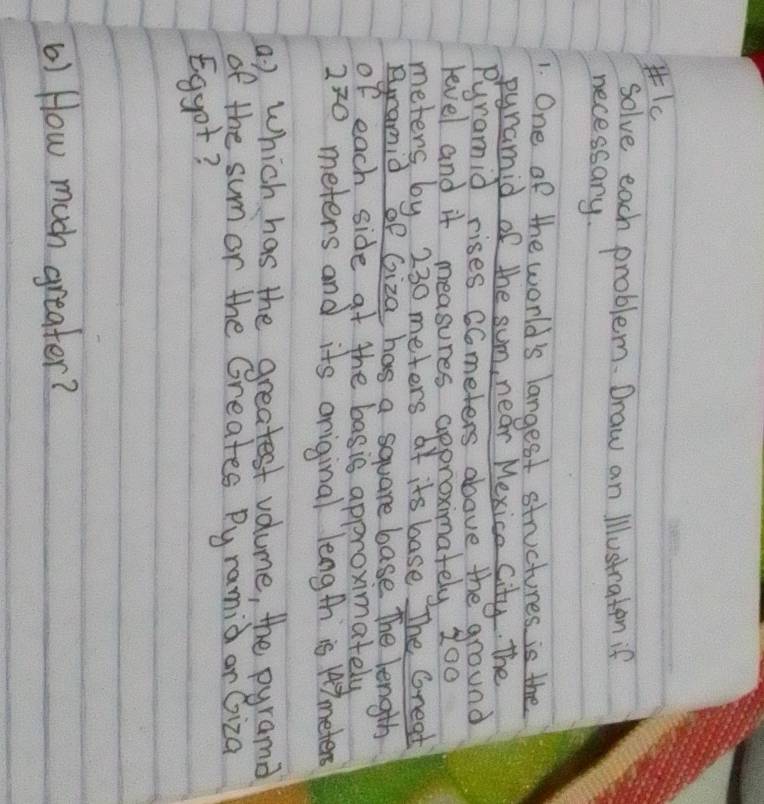 #1c
Solve each problem. Draw an Illustraton if
necessary.
1. One of the world's largest structures is the
pyramid of the sum, near Mexico City. The
pyramid rises 66 meters above the ground
level and it measures approximately 200
meters by 230 meters at its base. The Great
Pyramid of Giza has a square base. The length
of each side at the basis approximately
230 meters and its original length is 147 meters
a.) Which has the greatest volume, the pyramid
of the sum or the Greates Pyramid or Giza
Egypt?
b) How much greater?